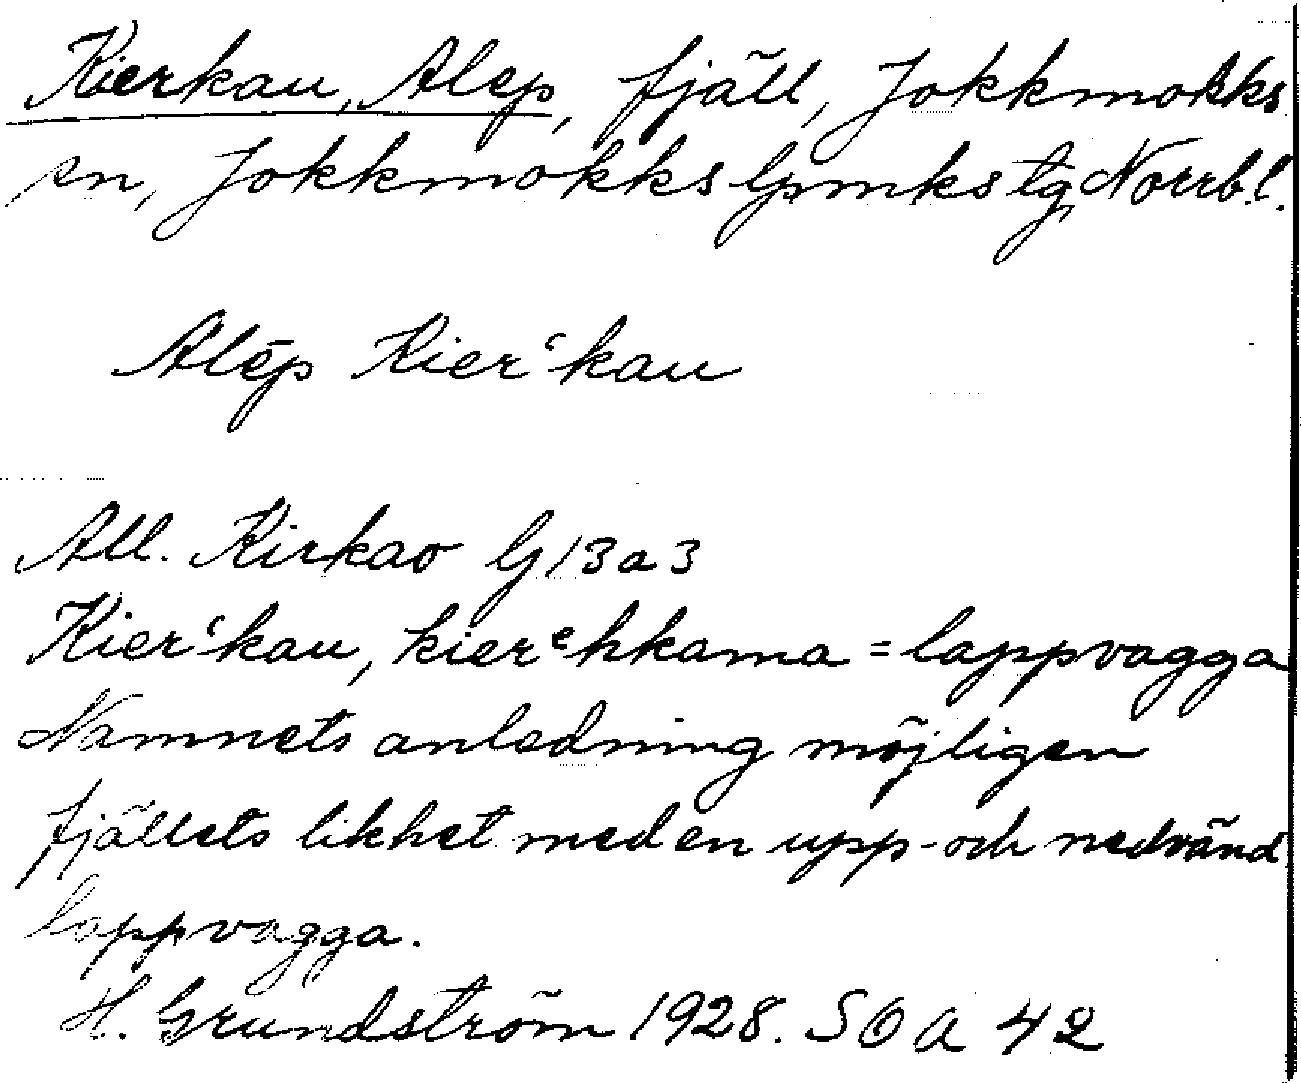 Kierkau, Alep, fjäll, Jokkmokks
sn, Jokkmokks lpmks tg, Norrb.l.
Alēp Kierʽkau
All. Kirkao G13a3
Kierʽkau, kierᵉhkama = lappvagga
Namnets anledning möjligen
fjällets likhet med en upp- och nedvänd
lappvagga.
H. Grundström 1928. SOA 42